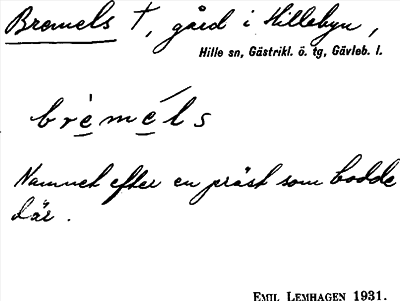 Bremels †, gård i Hillebyn,
Hille sn, Gästrikl. ö. tg, Gävleb. l.
brè̱mé̱ls
Namnet efter en präst som bodde
där.
EMIL LEMHAGEN 1931.